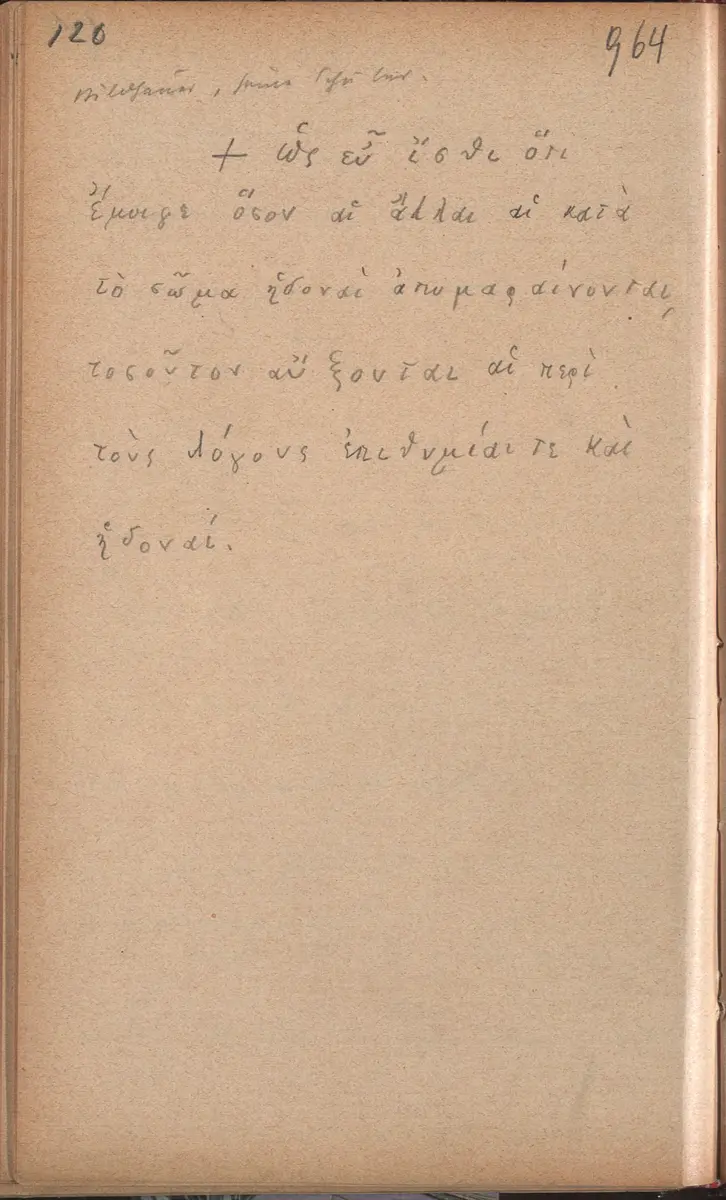 120 964
Bildhauer, seine Schüler.
+ ὡς εὖ ἴσθι ὅτι
ἔμοιγε ὅσον αἱ ἄλλαι αἱ κατὰ
τὸ σῶμα ἡδοναὶ ἀπομαραίνονται,
τοσοῦτον αὔξονται αἱ περὶ
τοὺς λόγους ἐπιθυμίαι τε καὶ
ἡδοναί.